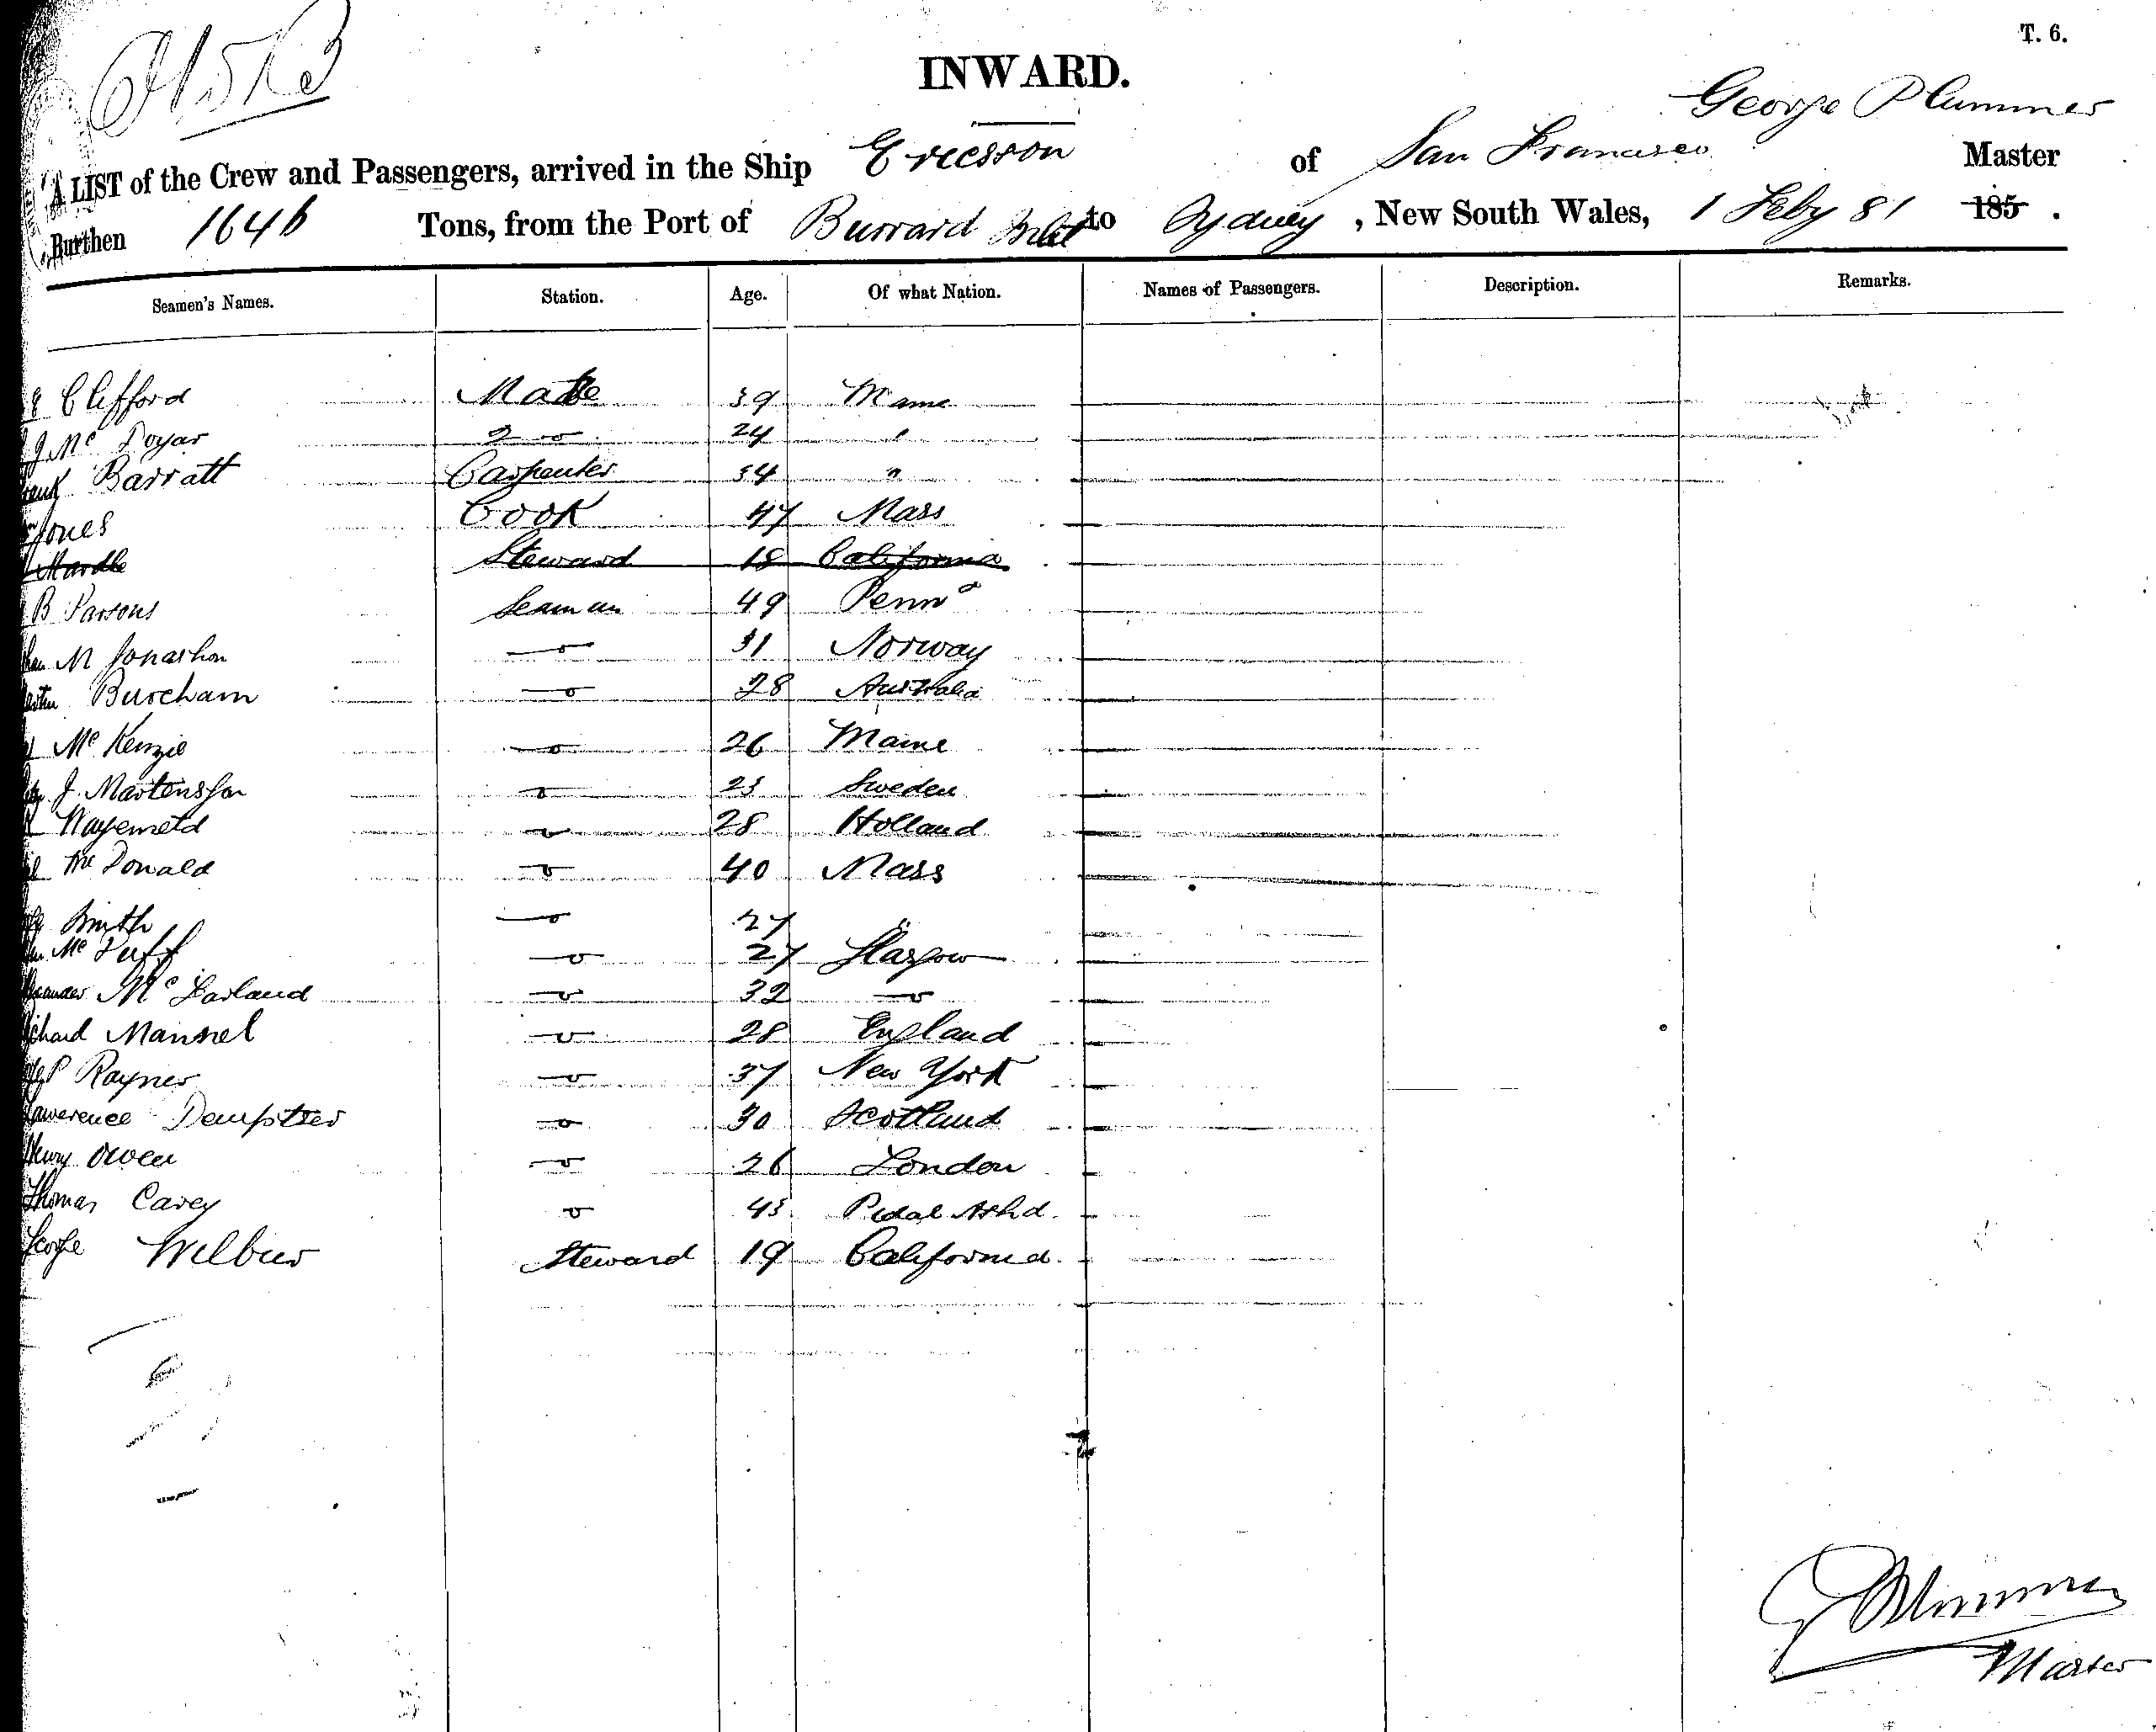 T. 6.
INWARD.
George Plummer
A LIST of the Crew and Passengers, arrived in the Ship Ericsson of San Francisco Master
Burthen 1646 Tons, from the Port of Burrard Inlet to Sydney, New South Wales, 1 Feby 81 185 .
Seamen's Names. Station. Age. Of what Nation. Names of Passengers. Description. Remarks.
Clifford Mate 39 Maine
J. Mc Doyar 2 " 24 "
Barratt Carpenter 34 "
Jones Cook 47 Mass
Mardle Steward 18 California
B Parsons Seaman 49 Penna
M Jonashon " 31 Norway
Burcham " 28 Australia
Mc Kenzie " 26 Maine
J. Martensson " 23 Sweden
28 Holland
Mc Donald " 40 Mass
Smith " 27 "
Mc Duff " 27 Glasgow
Mc Farland " 32 "
Richard Mannel " 28 England
Rayner " 37 New York
Lawerence Dempster " 30 Scotland
Henry Owen " 26 London
Thomas Carey " 43
George Wilbur Steward 19 California
G Plummer
Master